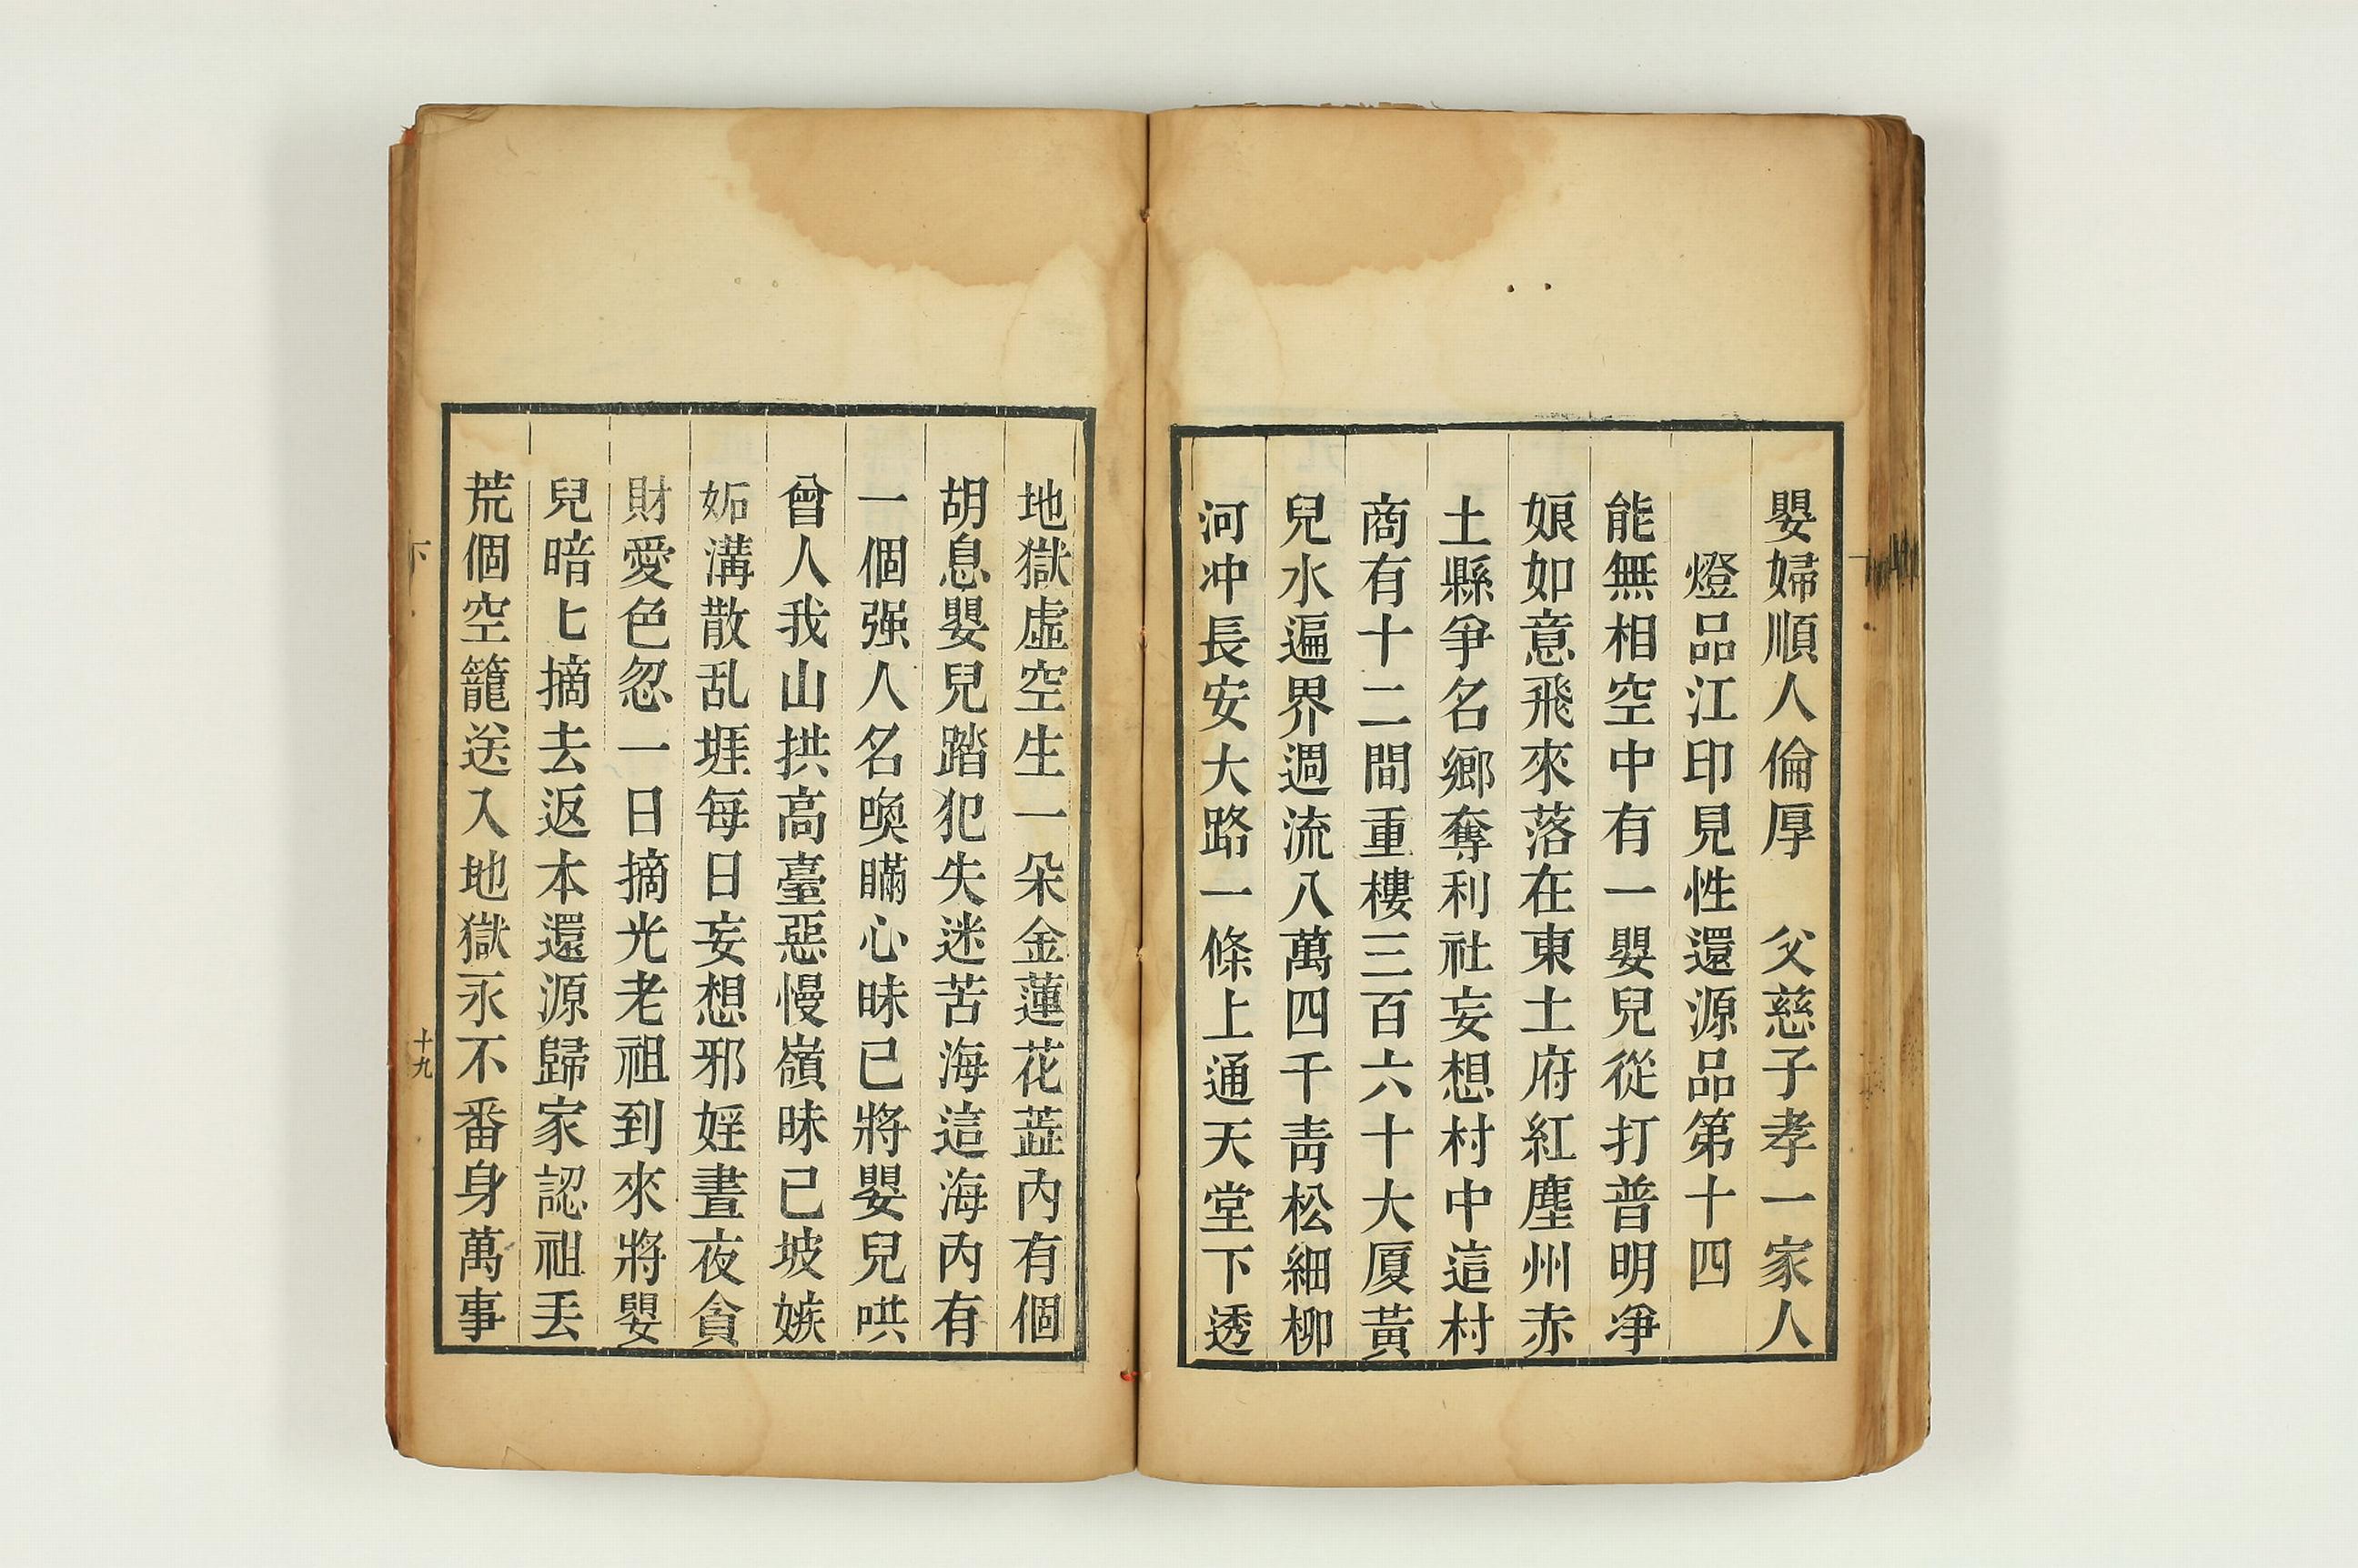 嬰婦順人倫厚　父慈子孝一家人
燈品江印見性還源品第十四
能無相空中有一嬰兒從打普明淨
娘如意飛來落在東土府紅塵州赤
土縣爭名鄉奪利社妄想村中這村
商有十二間重樓三百六十大厦黃
兒水遍界週流八萬四千靑松細柳
河冲長安大路一條上通天堂下透
地獄虛空生一朵金蓮花蕋內有個
胡息嬰兒踏犯失迷苦海這海內有
一個强人名喚瞞心昧已將嬰兒哄
曾人我山拱高臺惡慢嶺昧已坡嫉
妬溝散乱堐每日妄想邪婬晝夜貪
財愛色忽一日摘光老祖到來將嬰
兒暗匕摘去返本還源歸家認祖丟
荒個空籠送入地獄永不番身萬事
下
十九